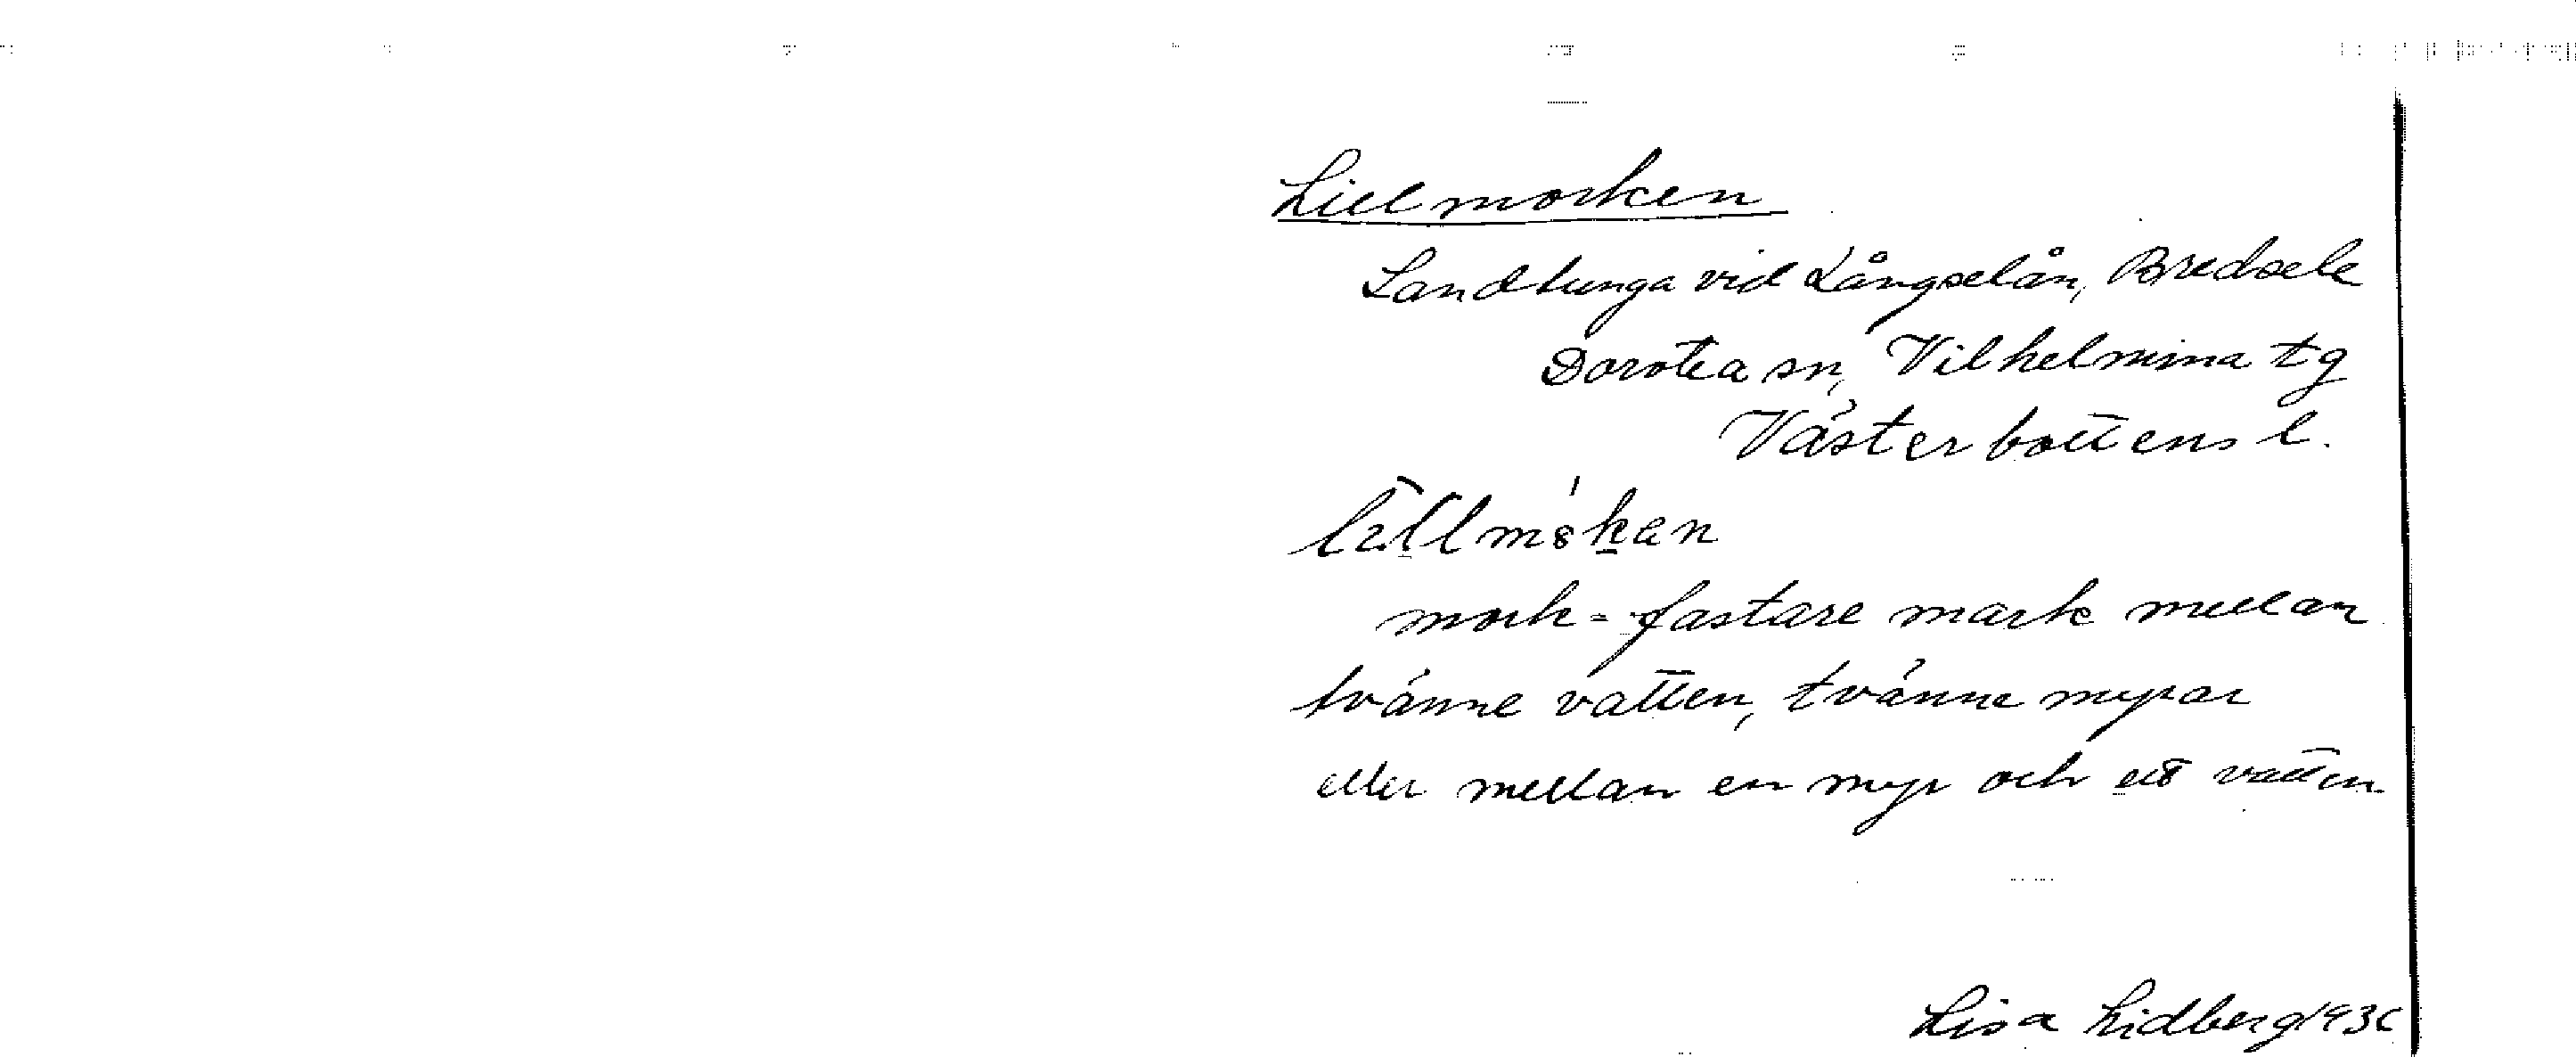 Lillmorken
Landtunga vid Långselån, Bredsele
Dorotea sn, Vilhelmina tg
Västerbottens l.
mork = fastare mark mellan
tvänne vatten, tvänne myrar
eller mellan en myr och ett vatten
Lisa Lidberg